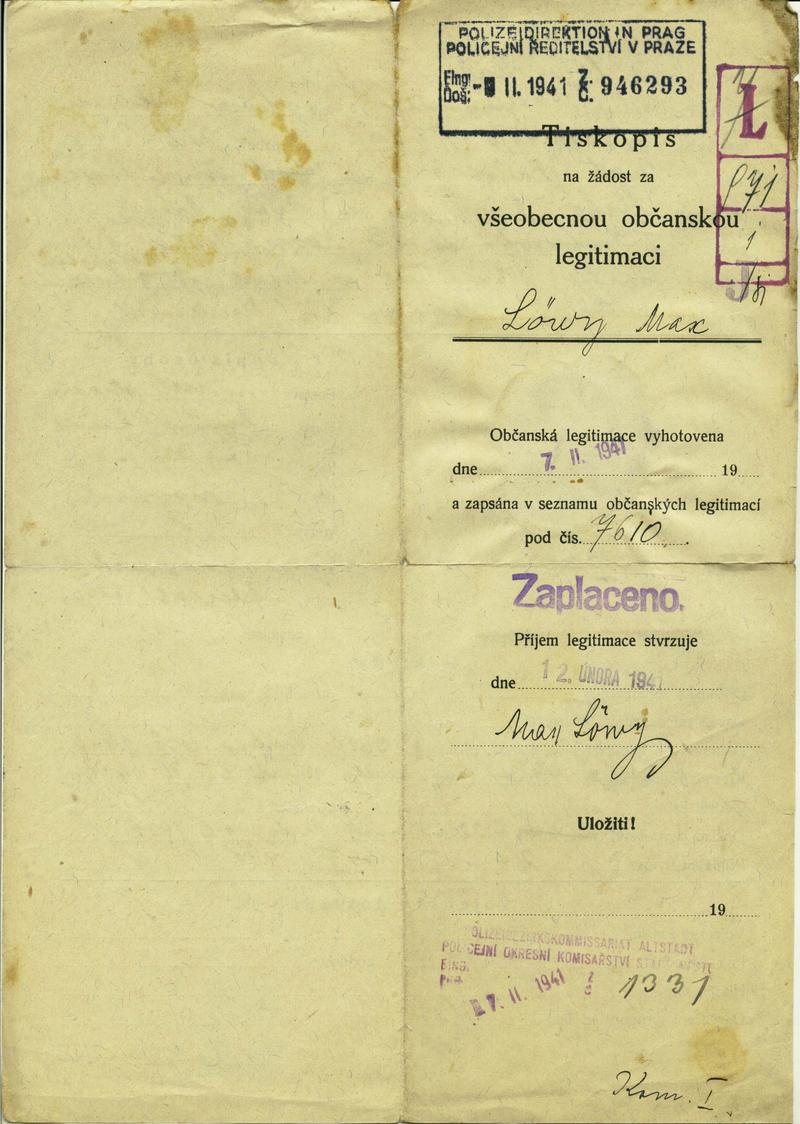 POLIZEIDIREKTION IN PRAG
POLICEJNÍ ŘEDITELSTVÍ V PRAZE
Eing:
Doš: II. 1941 Z. Č. 946293
L
Tiskopis
na žádost za
všeobecnou občanskou
legitimaci
J
Löwy Max
Občanská legitimace vyhotovena
dne 7. II. 1941 19
a zapsána v seznamu občanských legitimací
pod čís. 7610
Zaplaceno.
Příjem legitimace stvrzuje
dne 12. ÚNORA 1941
Max Löwy
Uložiti!
19
POLIZEIBEZIRKSKOMMISSARIAT ALTSTADT
POLICEJNÍ OKRESNÍ KOMISAŘSTVÍ
7. II. 1941 1331
Kom. I.